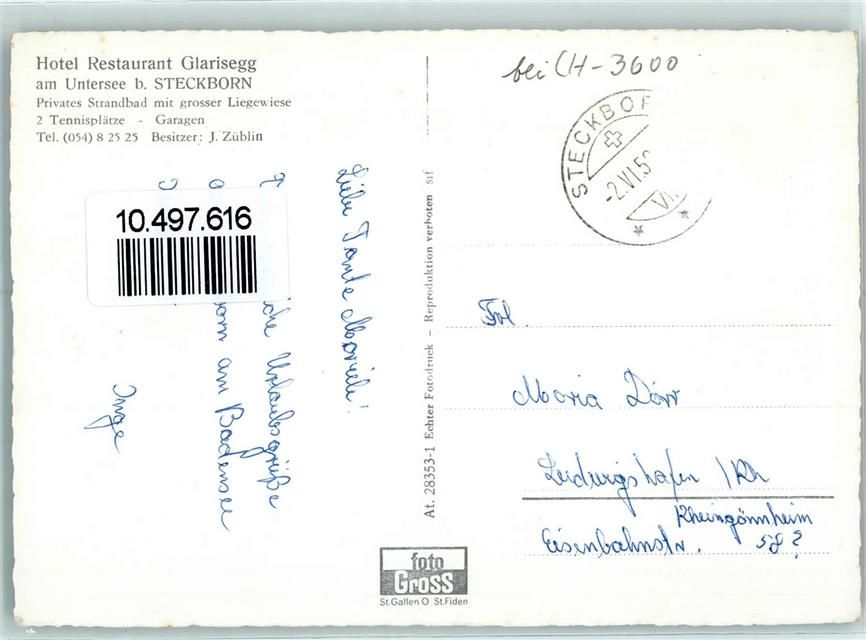 Hotel Restaurant Glarisegg
am Untersee b. STECKBORN
Privates Strandbad mit grosser Liegewiese
2 Tennisplätze - Garagen
Tel. (054) 8 25 25 Besitzer: J. Züblin
10.497.616
Liebe Tante Mariele!
Urlaubsgrüße
am Badensee
Inge
At. 28353-1 Echter Fotodruck - Reproduktion verboten
foto
Gross
St.Gallen O St.Fiden
bei CH-3600
STECKBOR
-2.VI.5
Frl.
Maria Dörr
Ludwigshafen / Rh
Rheingönnheim
Eisenbahnstr. 58 ?